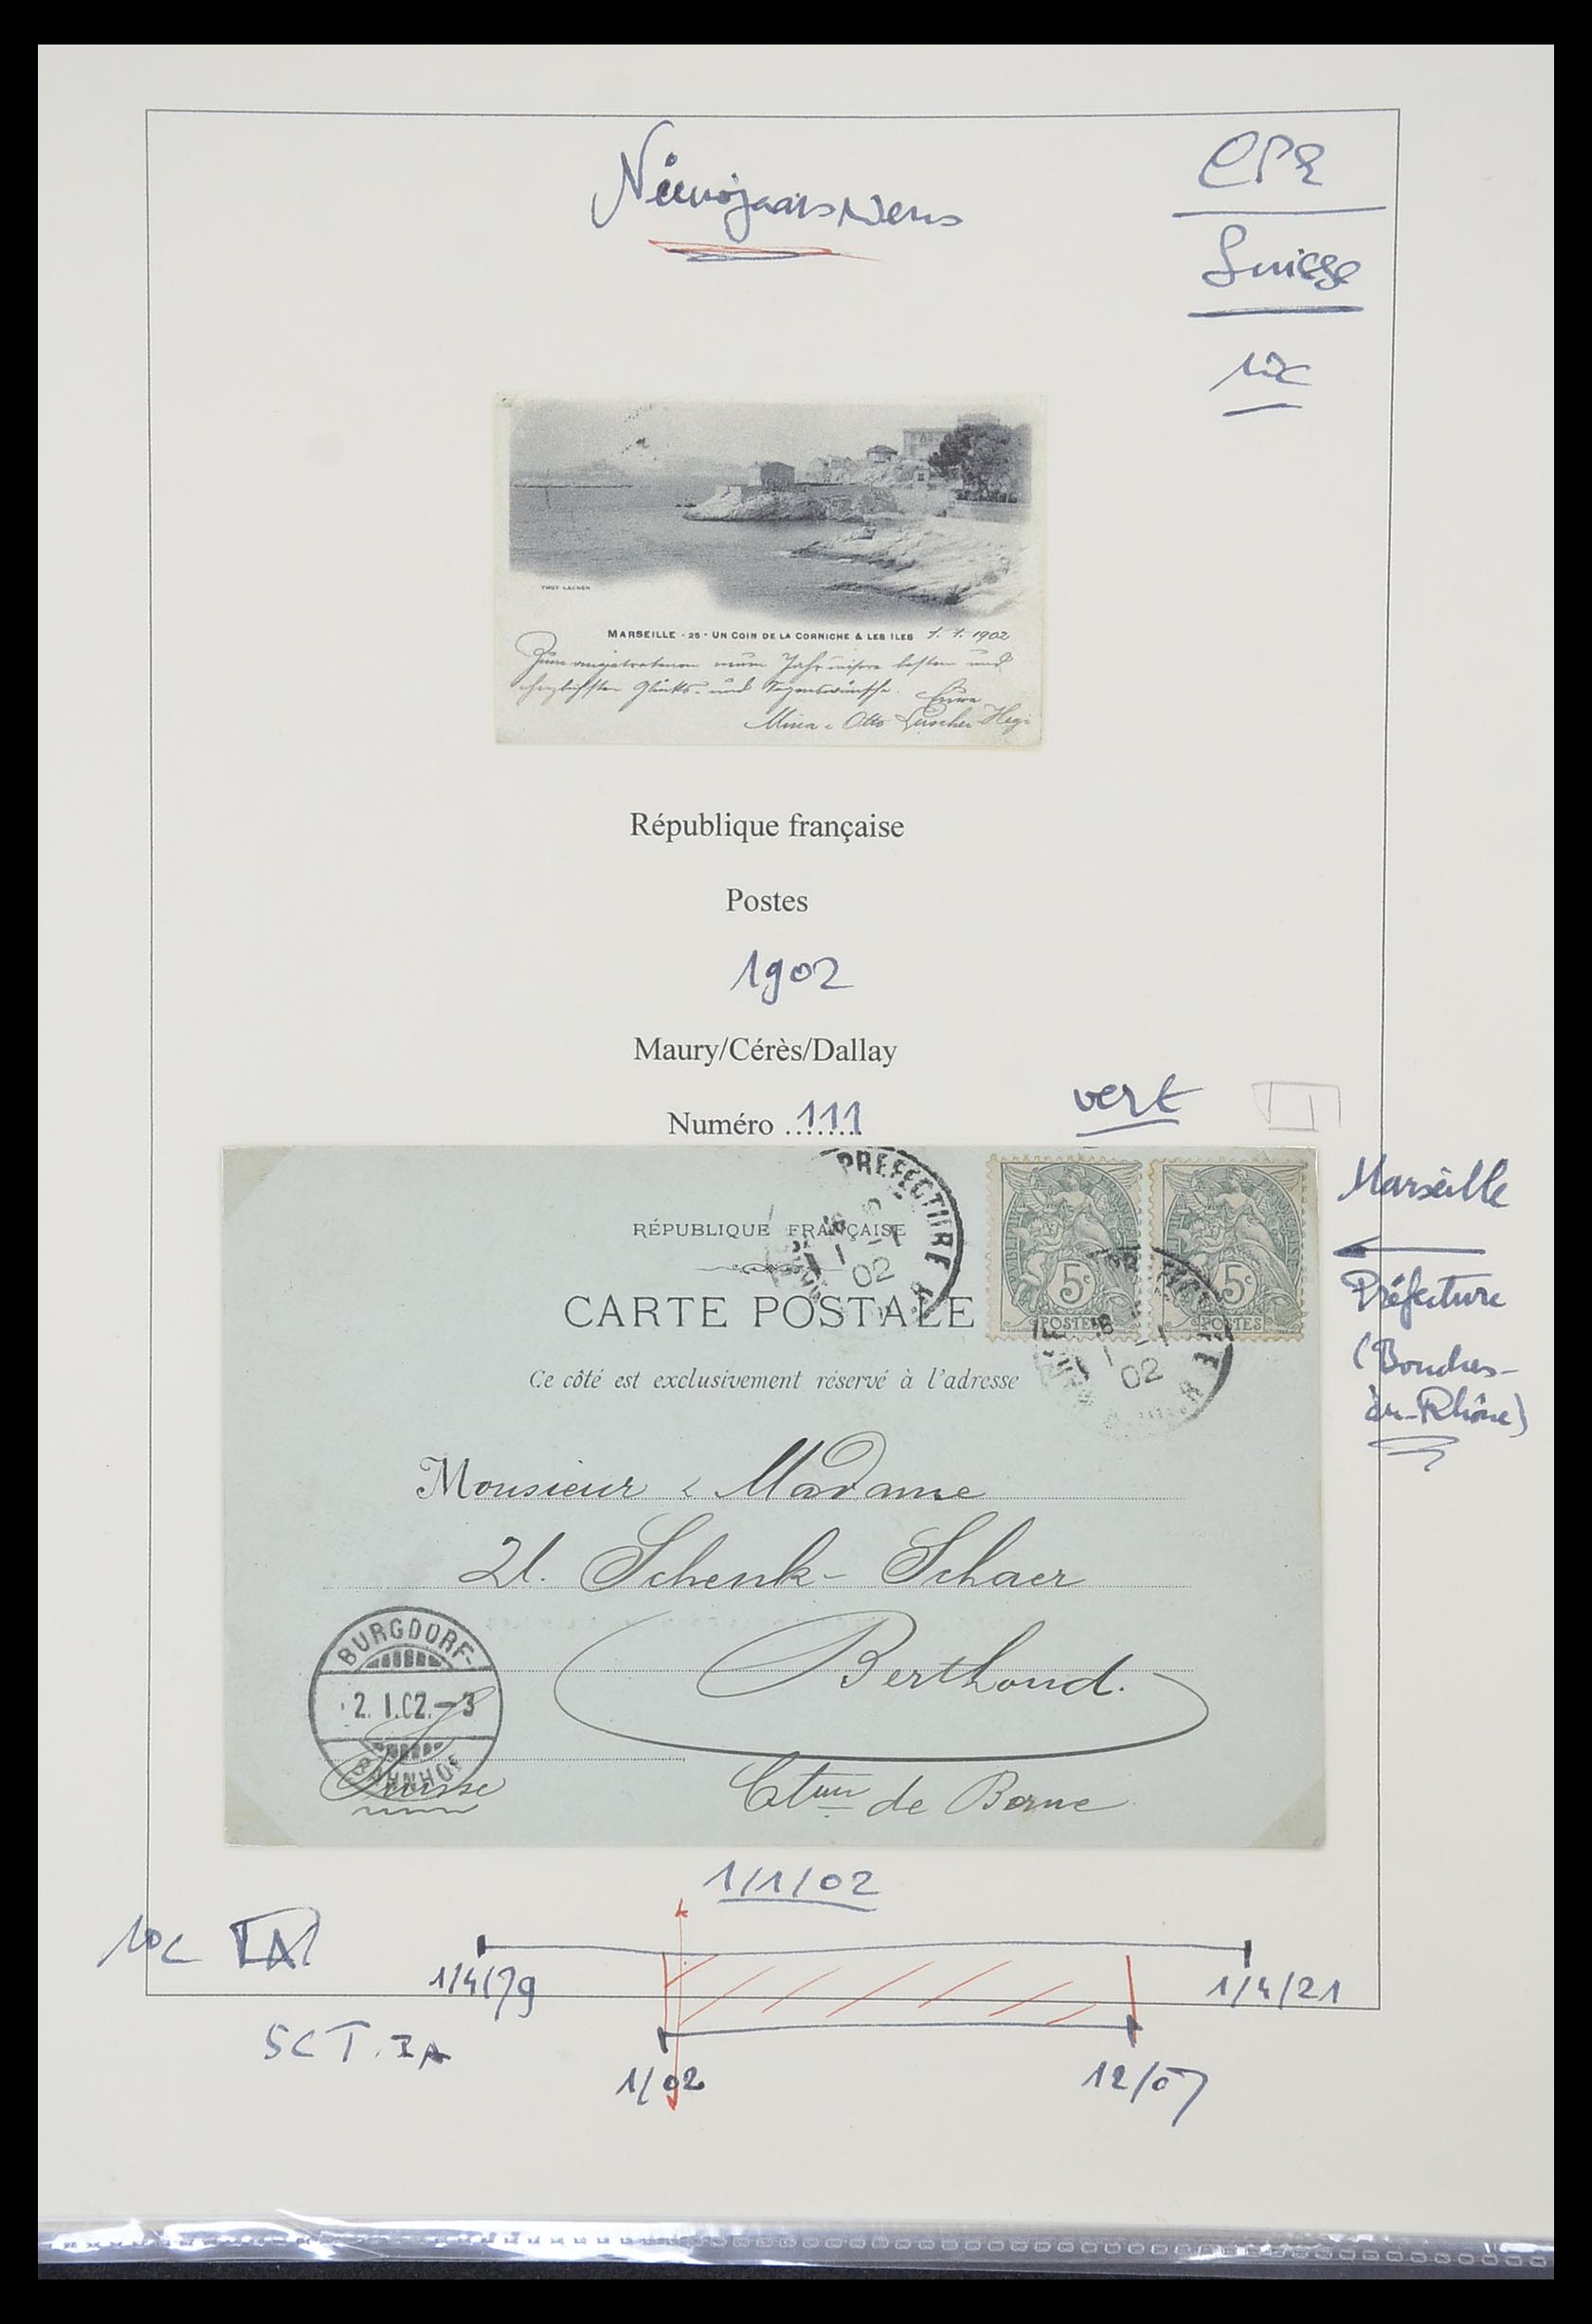 Nieuwjaarswens
CPR
Suisse
10c
PHOT LACOUR
MARSEILLE - 25 - UN COIN DE LA CORNICHE & LES ILES 1. 1. 1902
Zum angetretenen neuen Jahr unsere besten und
herzlichsten Glücks- und Segenswünsche. Eure
Mina & Otto Lüscher-Hegi
République française
Postes
1902
Maury/Cérès/Dallay
Numéro 111
vert
Marseille
Préfecture
(Bouches-
du-Rhône)
PREFECTURE
02
RÉPUBLIQUE FRANÇAISE
CARTE POSTALE
Ce côté est exclusivement réservé à l'adresse
5c 5c
POSTES POSTES
02
Monsieur & Madame
Schenk-Schaer
Berthoud.
BURGDORF-
2. I. 02.-3
BAHNHOF
Suisse
Cton de Berne
1/1/02
10c
1/4/79
1/4/21
SCT. IA
1/02
12/07